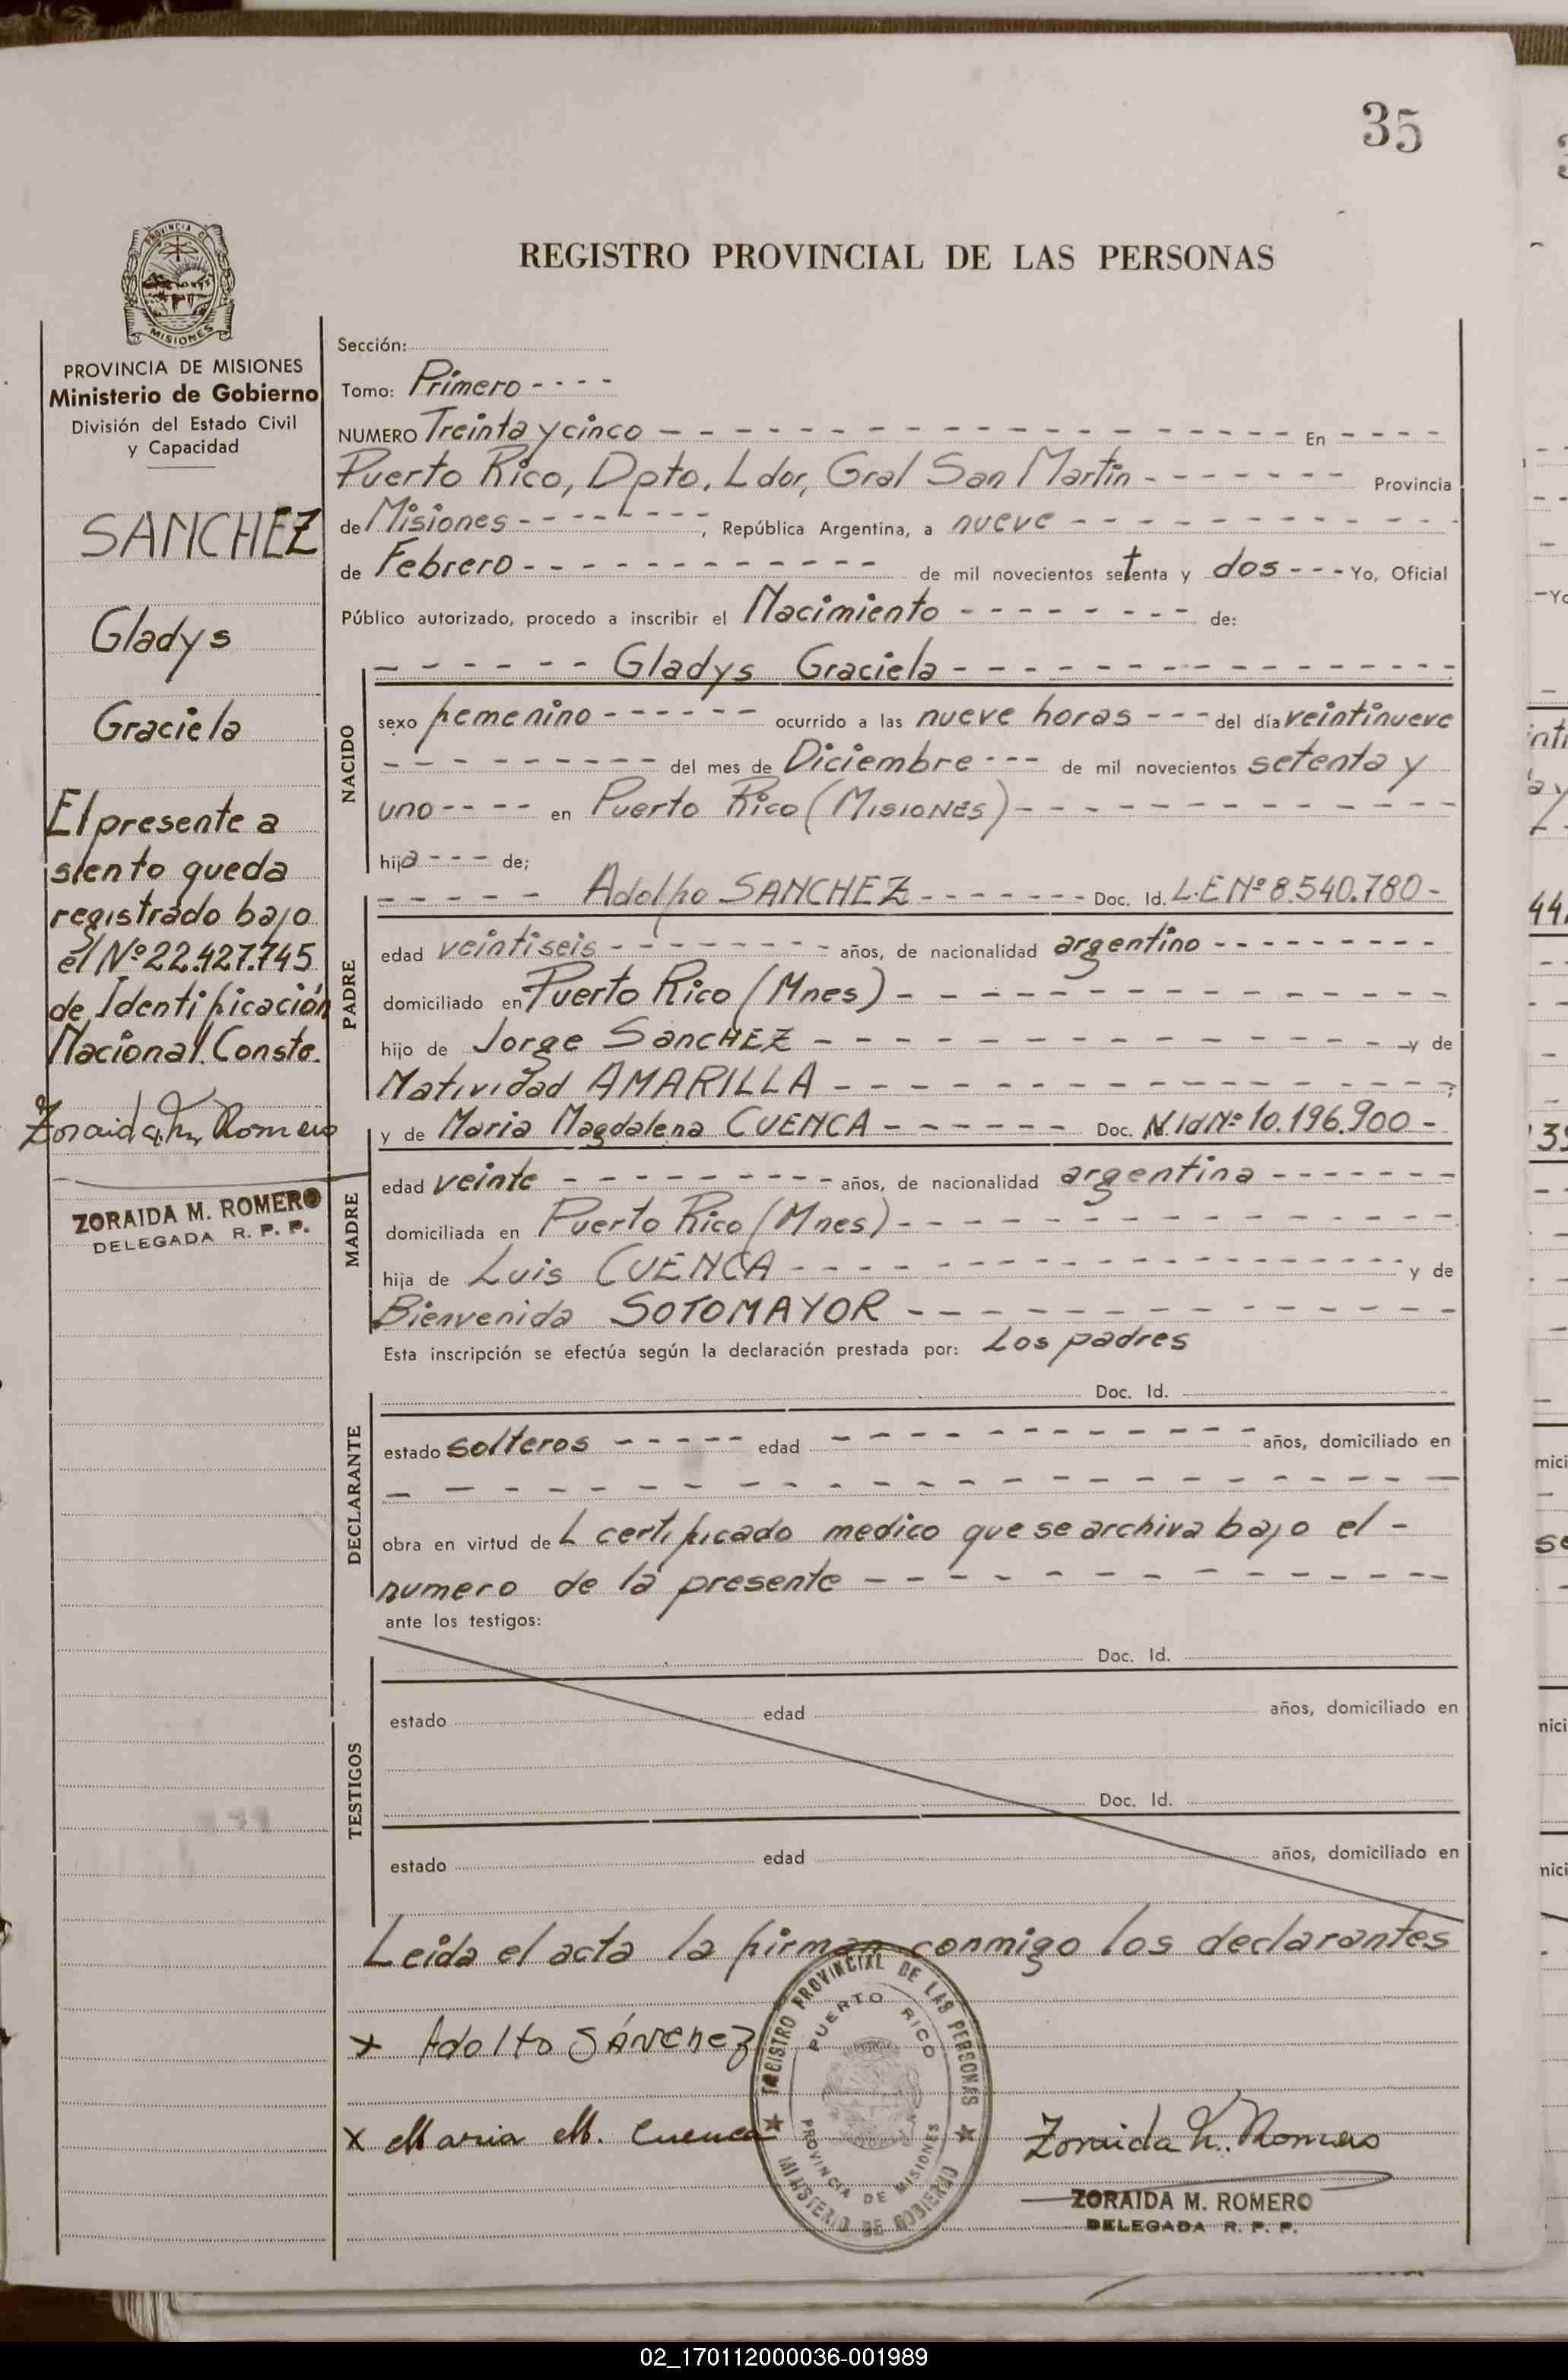 35
REGISTRO PROVINCIAL DE LAS PERSONAS
PROVINCIA DE MISIONES
Ministerio de Gobierno
División del Estado Civil
y Capacidad
SANCHEZ
Gladys
Graciela
El presente a
siento queda
registrado bajo
el Nº 22.427.745
de Identificación
Nacional. Conste.
Zoraida M. Romero
ZORAIDA M. ROMERO
DELEGADA R. P. P.
Sección:
Tomo: Primero - - - -
NUMERO Treinta y cinco - - - - En - - - -
Puerto Rico, Dpto. Ldor, Gral San Martin - - - - Provincia
de Misiones - - - -, República Argentina, a nueve - - - -
de Febrero - - - - de mil novecientos setenta y dos - - - Yo, Oficial
Público autorizado, procedo a inscribir el Nacimiento - - - - de:
NACIDO
- - - - Gladys Graciela - - - -
sexo femenino - - - - ocurrido a las nueve horas - - - del día veintinueve
- - - - del mes de Diciembre - - - de mil novecientos setenta y
uno - - - - en Puerto Rico (MISIONES) - - - -
hija - - - de;
PADRE
- - - - Adolfo SANCHEZ - - - - Doc. Id. L.E Nº 8.540.780 -
edad veintiseis - - - - años, de nacionalidad argentino - - - -
domiciliado en Puerto Rico (Mnes) - - - -
hijo de Jorge SancHEZ - - - - y de
Natividad AMARILLA - - - - ;
MADRE
y de Maria Magdalena CUENCA - - - - Doc. N.Id Nº 10.196.900 -
edad veinte - - - - años, de nacionalidad argentina - - - -
domiciliada en Puerto Rico (Mnes) - - - -
hija de Luis CUENCA - - - - y de
Bienvenida SOTOMAYOR - - - -
Esta inscripción se efectúa según la declaración prestada por: Los padres
DECLARANTE
Doc. Id.
estado solteros - - - - edad - - - - años, domiciliado en
- - - -
obra en virtud de L certificado medico que se archiva bajo el -
numero de la presente - - - -
ante los testigos:
TESTIGOS
Doc. Id.
estado edad años, domiciliado en
Doc. Id.
estado edad años, domiciliado en
Leida el acta la firman conmigo los declarantes
x Adolfo SÁNchez
x Maria M. Cuenca
REGISTRO PROVINCIAL DE LAS PERSONAS
PUERTO RICO
PROVINCIA DE MISIONES
MINISTERIO DE GOBIERNO
Zoraida M. Romero
ZORAIDA M. ROMERO
DELEGADA R. P. P.
02_170112000036-001989